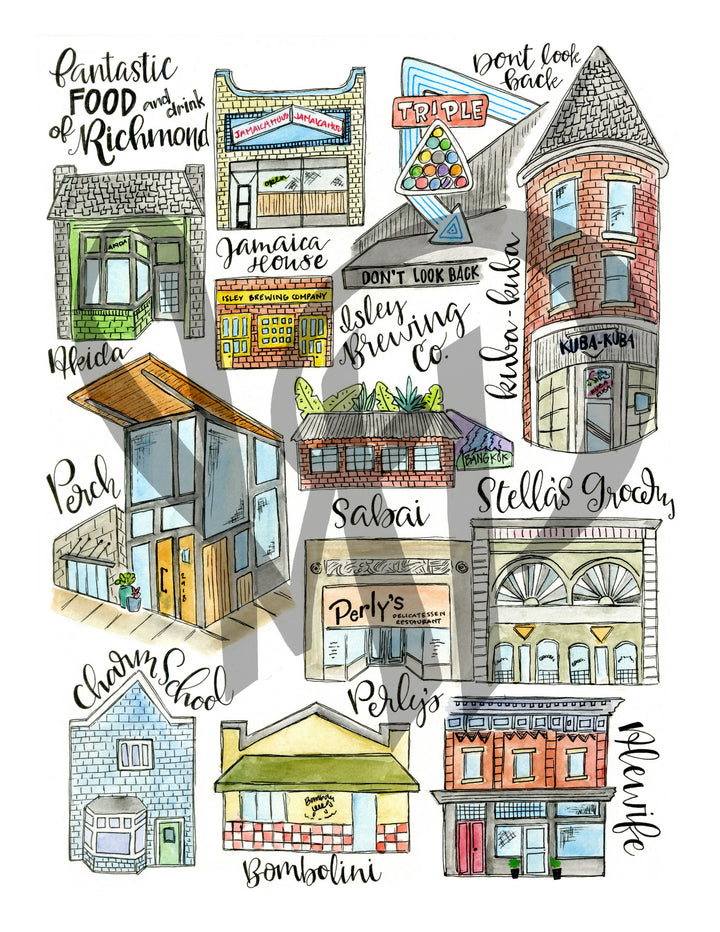 fantastic
FOOD and drink
of Richmond
JAMAICA HOUSE JAMAICA HOUSE
open
Jamaica
House
TRIPLE
Don't look
back
DON'T LOOK BACK
AKIDA
Akida
ISLEY BREWING COMPANY
Isley
Brewing
Co.
Kuba-Kuba
KUBA-KUBA
Perch
2918
BANGKOK
Sabai
Stella's Grocery
Perly's
DELICATESSEN
RESTAURANT
Perly's
Charm School
Bombolini
Alewife